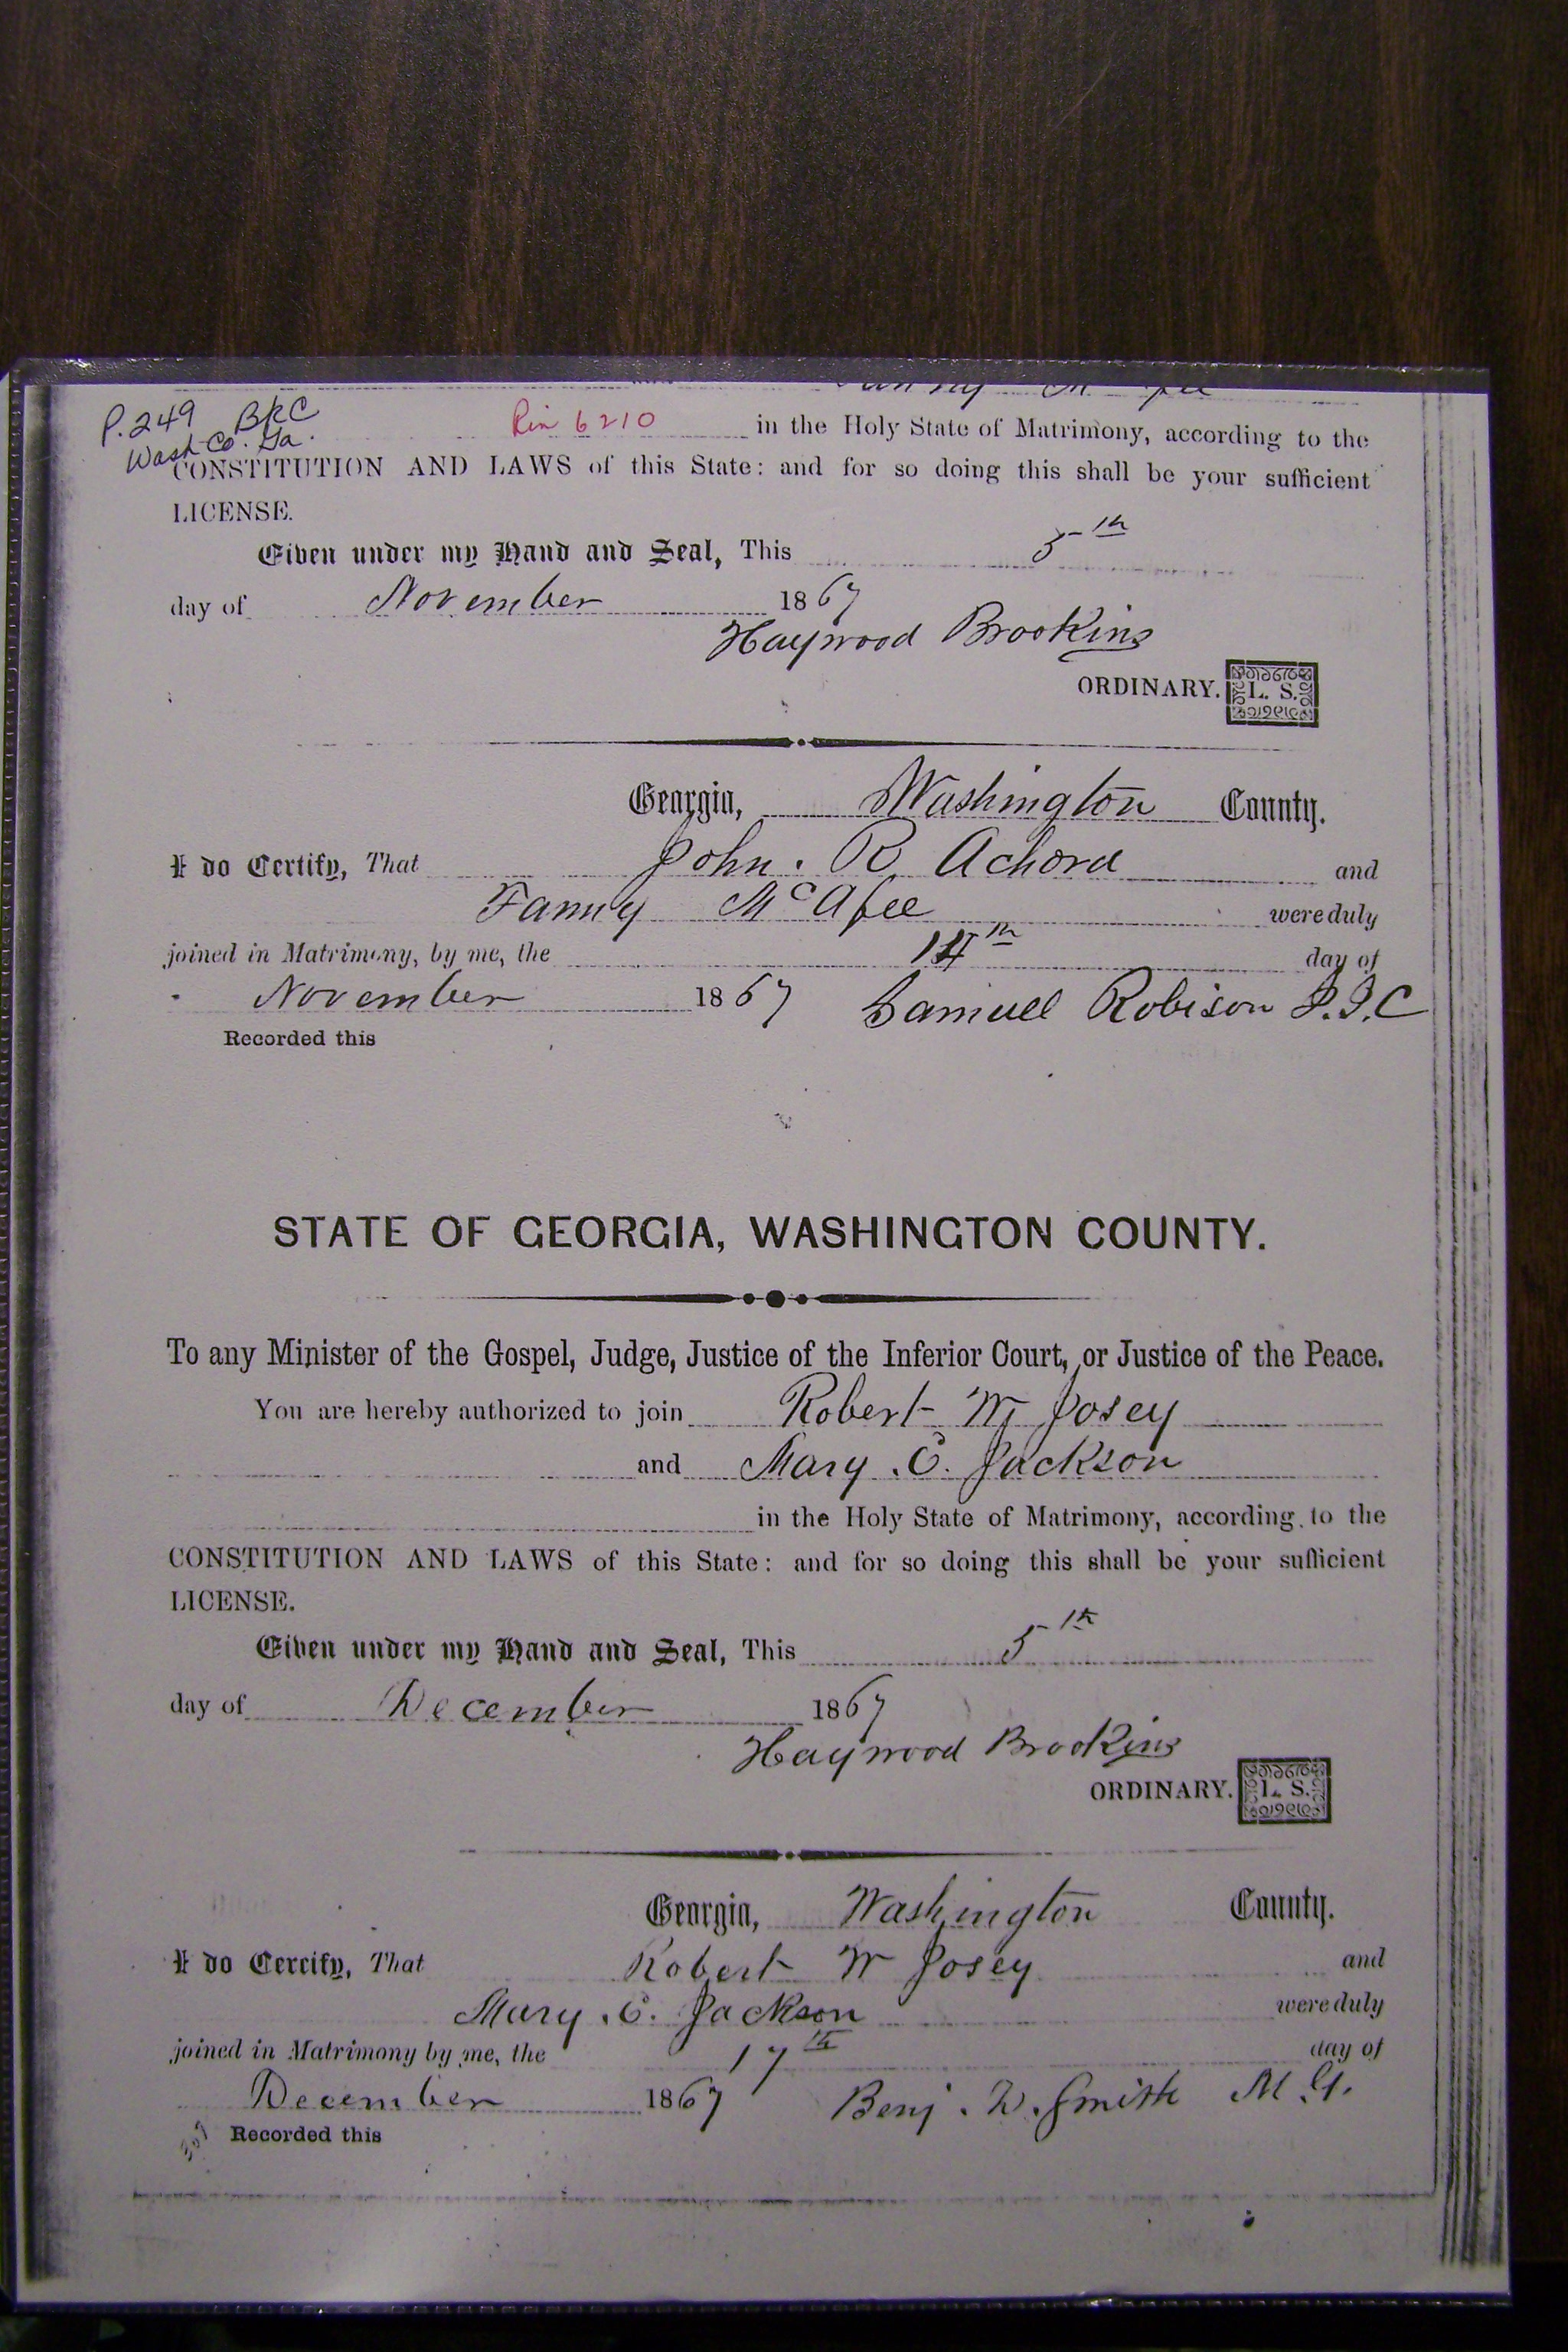 P. 249 BKC
Wash Co. Ga.
Rin 6210 in the Holy State of Matrimony, according to the
CONSTITUTION AND LAWS of this State: and for so doing this shall be your sufficient
LICENSE.
Given under my Hand and Seal, This 5th
day of November 1867
Haywood Brookins
ORDINARY. L. S.
Georgia, Washington County.
I do Certify, That John. R. Achord and
Fanny McAfee were duly
joined in Matrimony, by me, the 14th day of
November 1867 Samuel Robison J.I.C
Recorded this
STATE OF GEORGIA, WASHINGTON COUNTY.
To any Minister of the Gospel, Judge, Justice of the Inferior Court, or Justice of the Peace.
You are hereby authorized to join Robert W Josey
and Mary . E. Jackson
in the Holy State of Matrimony, according to the
CONSTITUTION AND LAWS of this State: and for so doing this shall be your sufficient
LICENSE.
Given under my Hand and Seal, This 5th
day of December 1867
Haywood Brookins
ORDINARY. L. S.
Georgia, Washington County.
I do Cercify, That Robert W Josey and
Mary . E. Jackson were duly
joined in Matrimony by me, the 17th day of
December 1867 Benj . W. Smith M. G.
Recorded this